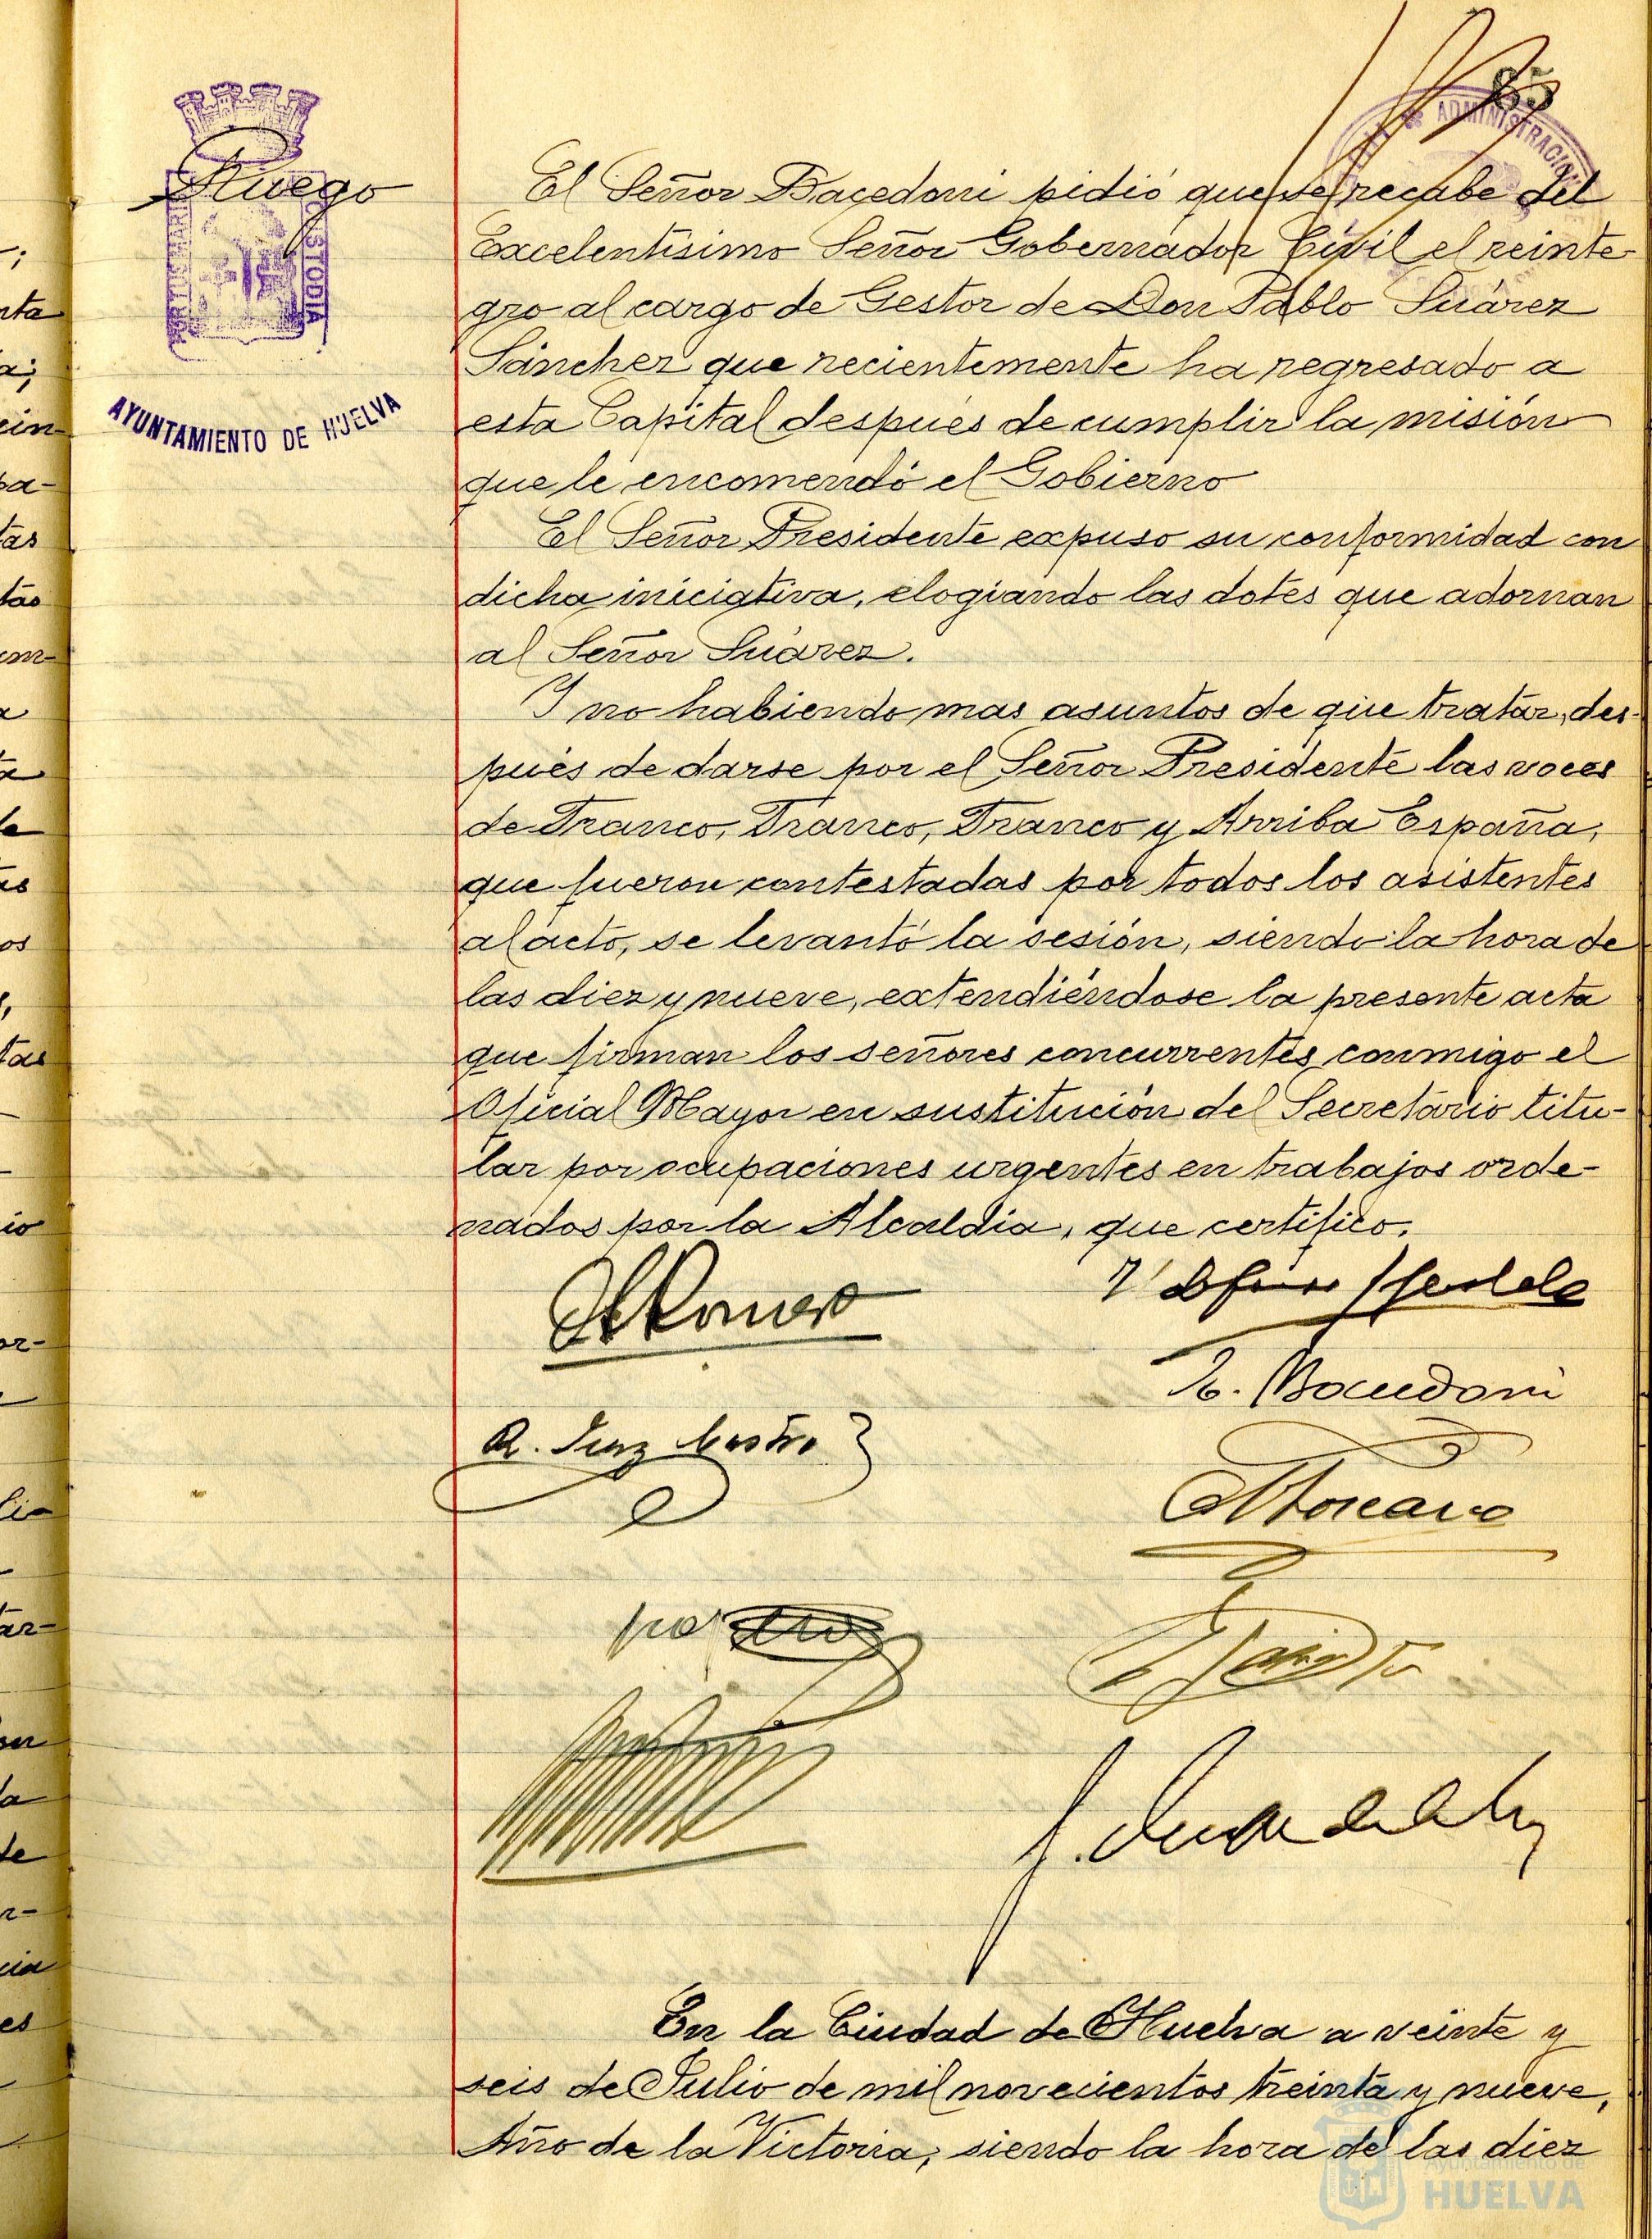 85
ADMINISTRACION
Ruego
PORTUS MARIS
CUSTODIA
AYUNTAMIENTO DE HUELVA
El Señor Bacedoni pidió que se recabe del
Excelentísimo Señor Gobernador Civil el reinte-
gro al cargo de Gestor de Don Pablo Suárez
Sánchez que recientemente ha regresado a
esta Capital después de cumplir la misión
que le encomendó el Gobierno
El Señor Presidente expuso su conformidad con
dicha iniciativa, elogiando las dotes que adornan
al Señor Suárez.
Y no habiendo mas asuntos de que tratar, des-
pués de darse por el Señor Presidente las voces
de Franco, Franco, Franco y Arriba España,
que fueron contestadas por todos los asistentes
al acto, se levantó la sesión, siendo la hora de
las diez y nueve, extendiéndose la presente acta
que firman los señores concurrentes conmigo el
Oficial Mayor en sustitución del Secretario titu-
lar por ocupaciones urgentes en trabajos orde-
nados por la Alcaldia, que certifico.
En la Ciudad de Huelva a veinte y
seis de Julio de mil novecientos treinta y nueve,
Año de la Victoria, siendo la hora de las diez
Ayuntamiento de
HUELVA